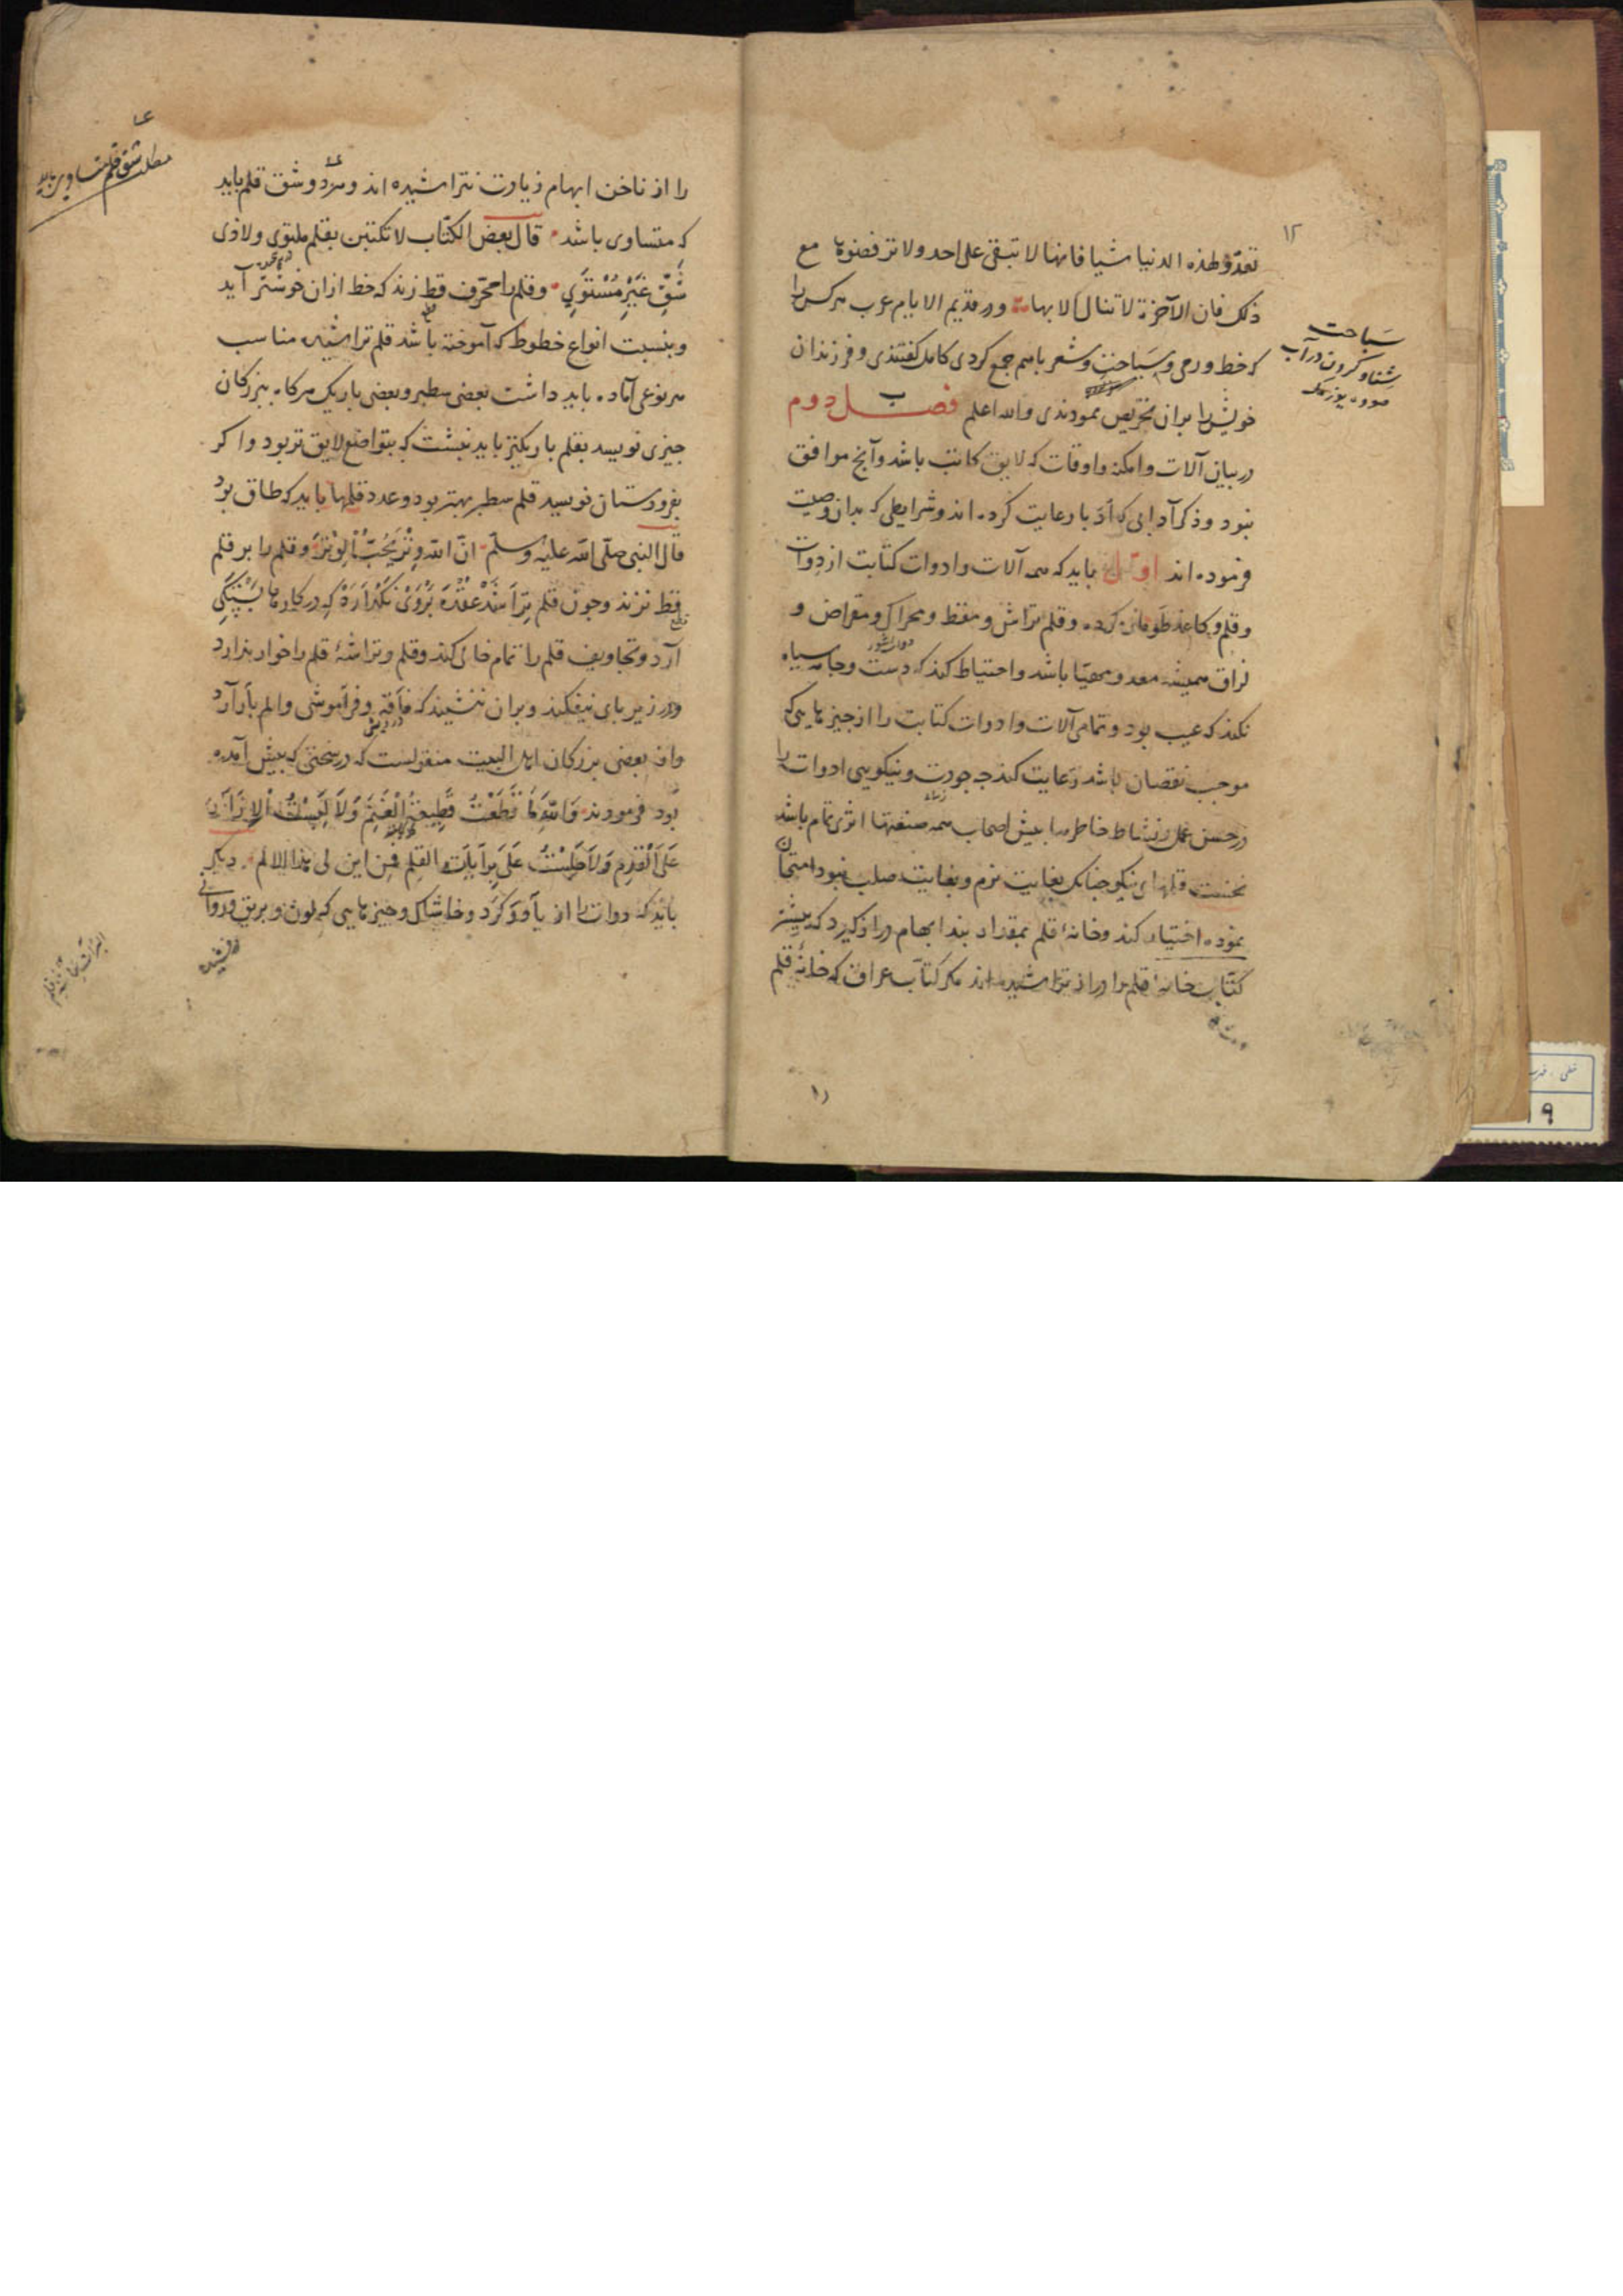 ۱۲
تعدّو لهذه الدنیا شیا فانها لا تبقی علی احد ولا ترفضوها مع
ذلک فان الآخرة لا تنال الا بها و در قدیم الایام عرب هرکس را
که خط و رمی و سَباحت و شعر باهم جمع کردی کامل گفتندی و فرزندان
خویش را بران تحریص نمودندی والله اعلم فصل دوم
در بیان آلات و امکنه و اوقات که لایق کاتب باشد و آنچ موافق
نبود و ذکر آدابی که ادبا رعایت کرده اند و شرایطی که بدان وصیت
فرموده اند اوّل باید که همه آلات و ادوات کتابت از دوات
و قلم و کاغذ و قلم تراش و مقط و محراک و مقراض و
لزاق همیشه معد و مهیّا باشد و احتیاط کند که دست و جامه سیاه
نکند که عیب بود و تمامی آلات و ادوات کتابت را از چیزهایی که
موجب نقصان باشد رعایت کند چه جودت و نیکویی ادوات را
در حسن عمل و نشاط خاطر بیش اصحاب همه صنعتها اثری تمام باشد
نخست قلمهای نیکو چنانک بغایت نرم و بغایت صلب نبود امتحان
نموده اختیار کند و خانهٔ قلم بمقدار بند ابهام دراز گیرد که بیشتر
کتّاب خانهٔ قلم را دراز تراشیده اند مکر کتّاب عراق که خانهٔ قلم
سَباحت
شناو کردن در آب
را از ناخن ابهام زیادت نتراشیده اند و هر دو شق قلم باید
که متساوی باشد قال بعض الکتّاب لا تکتبن بقلم ملتوی ولا ذی
شقّ غَیْرِ مُسْتَوِی و قلم را محرّف قط زند که خط ازان خوشتر آید
و بنسبت انواع خطوط که آموخته باشد قلم تراشیده مناسب
هر نوعی آماده باید داشت بعضی سطبر و بعضی باریک هرگاه ببزرکان
چیزی نویسد بقلم باریکتر باید نبشت که بتواضع لایق تر بود و اکر
بفرودستان نویسد قلم سطبر بهتر بود و عدد قلمها باید که طاق بود
قال النبی صلّی الله علیه وسلّم انّ الله وِتْرٌ یُحِبُّ الوِتْرَ و قلم را بر قلم
قط نزند و چون قلم تراشد عقده بروی نگذارد که در کارها بستگی
آرد و تجاویف قلم را تمام خالی کند و قلم و تراشهٔ قلم را خوار ندارد
و در زیر پای نیفکند و بران ننشیند که فاقه و فراموشی و الم بار آرد
و از بعضی بزرکان اهل البیت منقولست که در محنتی که پیش آمده
بود فرمودند وَاللهِ مَا قَطَعْتُ قَطِیعَةُ الْغَنَمِ وَلَا لَبِسْتُ
عَلَی الْقَدَمِ وَلَا جَلَسْتُ عَلَی بُرَایَاتِ القلم فمن این لی هذا الالم دیکر
باید که دوات را از باد و گرد و خاشاک و چیزهایی که لون و بریق و روانی